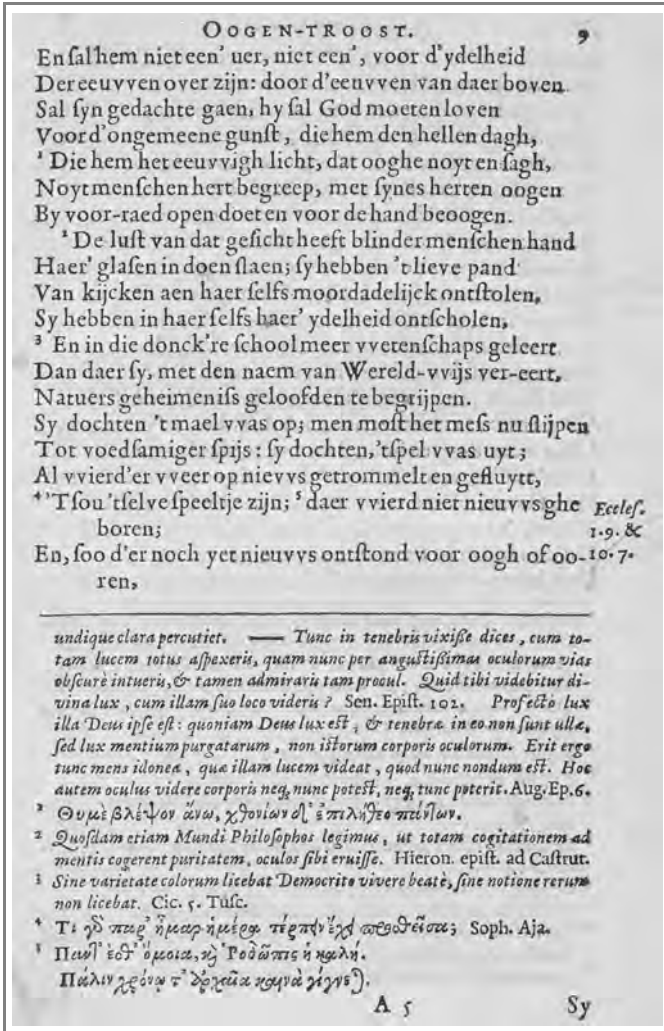 OOGEN-TROOST. 9
En ſal hem niet een' uer, niet een', voor d'ydelheid
Der eeuvven over zijn: door d'eeuvven van daer boven
Sal ſyn gedachte gaen, hy ſal God moeten loven
Voor d'ongemeene gunſt, die hem den hellen dagh,
¹ Die hem het eeuvvigh licht, dat ooghe noyt en ſagh,
Noyt menſchen hert begreep, met ſynes herten oogen
By voor-raed open doet en voor de hand beoogen.
² De luſt van dat geſicht heeft blinder menſchen hand
Haer' glaſen in doen ſlaen; ſy hebben 't lieve pand
Van kijcken aen haer ſelfs moordadelijck ontſtolen,
Sy hebben in haer ſelfs haer' ydelheid ontſcholen,
³ En in die donck're school meer vvetenſchaps geleert
Dan daer ſy, met den naem van Wereld-vvijs ver-eert,
Natuers geheimeniſs geloofden te begrijpen.
Sy dochten 't mael vvas op; men moſt het meſs nu ſlijpen
Tot voedſamiger ſpijs: ſy dochten, 'tſpel vvas uyt;
Al vvierd'er vveer op nievvs getrommelt en gefluytt,
⁴ 'Tſou 'tſelve ſpeeltje zijn; ⁵ daer vvierd niet nieuvvs ghe Eccleſ.
boren; 1.9. &
En, ſoo d'er noch yet nieuvvs ontſtond voor oogh of oo- 10.7.
ren,
undique clara percutiet. — Tunc in tenebris vixiſſe dices, cum to-
tam lucem totus aſpexeris, quam nunc per anguſtiſſimas oculorum vias
obſcurè intueris, & tamen admiraris tam procul. Quid tibi videbitur di-
vina lux, cum illam ſuo loco videris? Sen. Epiſt. 102. Profectò lux
illa Deus ipſe eſt: quoniam Deus lux eſt, & tenebræ in eo non ſunt ullæ,
ſed lux mentium purgatarum, non iſtorum corporis oculorum. Erit ergo
tunc mens idonea, quæ illam lucem videat, quod nunc nondum eſt. Hoc
autem oculus videre corporis neq, nunc poteſt, neq, tunc poterit. Aug. Ep. 6.
² Θυμὲ βλέψον ἄνω, χθονίων δ' ἐπιλήθεο πάντων.
² Quoſdam etiam Mundi Philoſophos legimus, ut totam cogitationem ad
mentis cogerent puritatem, oculos ſibi eruiſſe. Hieron. epiſt. ad Caſtrut.
³ Sine varietate colorum licebat Democrito vivere beatè, ſine notione rerum
non licebat. Cic. 5. Tuſc.
⁴ Τί γὸ παρ' ἦμαρ ἡμέρα τέρπειν ἔχει προσθεῖσα; Soph. Aja.
⁵ Πάντ' ἐσθ' ὅμοια, καὶ Ῥοδῶπις ἡ καλή.
Πάλιν χρόνῳ τ' ἀρχαῖα καινὰ γίγνεται.
A 5 Sy